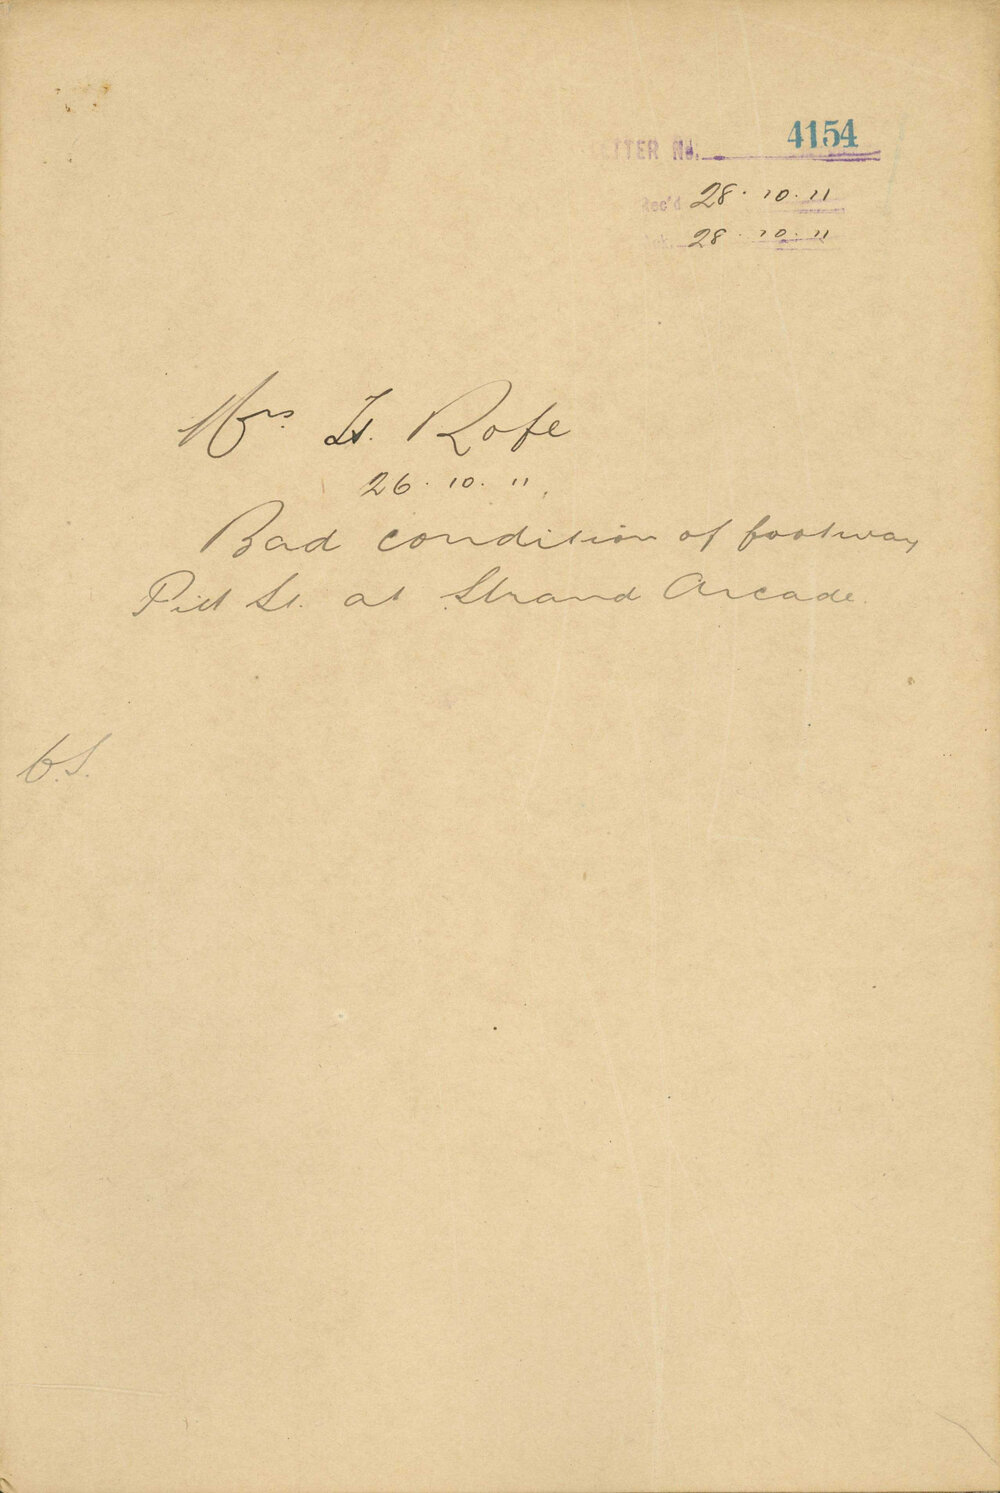 LETTER No. 4154
Rec'd 28.10.11
28.10.11
Mrs H. Rofe
26.10.11.
Bad condition of footway
Pitt St. at Strand Arcade.
C.S.